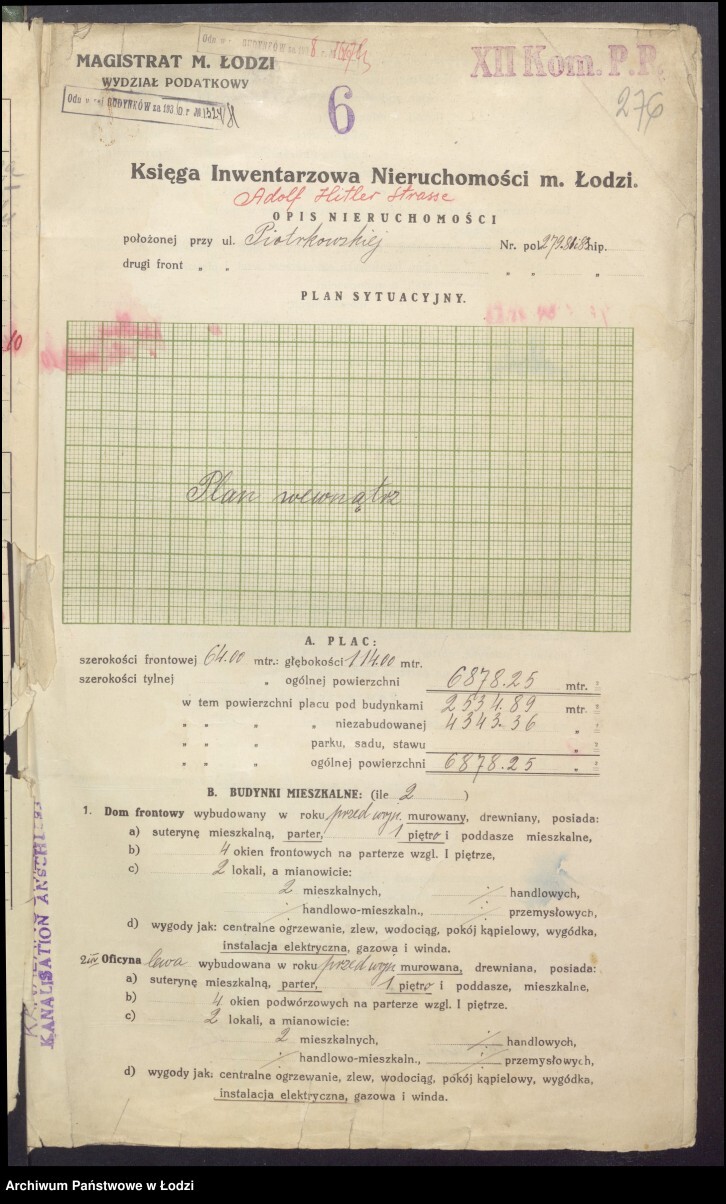 MAGISTRAT M. ŁODZI
WYDZIAŁ PODATKOWY
BUDYNKÓW za 193
XII Kom. P.P.
276
6
Księga Inwentarzowa Nieruchomości m. Łodzi.
Adolf Hitler Strasse
OPIS NIERUCHOMOŚCI
położonej przy ul. Piotrkowskiej Nr. pol. 279 hip.
drugi front „ „ „ „ „
PLAN SYTUACYJNY.
Plan wewnątrz
A. PLAC:
szerokości frontowej 64.00 mtr.: głębokości 114.00 mtr.
szerokości tylnej „ ogólnej powierzchni 6878.25 mtr. ²
w tem powierzchni placu pod budynkami 2534.89 mtr. ²
„ „ „ „ niezabudowanej 4343.36 „ ²
„ „ „ parku, sadu, stawu „ ²
„ „ „ ogólnej powierzchni 6878.25 „ ²
B. BUDYNKI MIESZKALNE: (ile 2 )
1. Dom frontowy wybudowany w roku przed woj. murowany, drewniany, posiada:
a) suterynę mieszkalną, parter, 1 piętro i poddasze mieszkalne,
b) 4 okien frontowych na parterze wzgl. I piętrze,
c) 2 lokali, a mianowicie:
2 mieszkalnych, ·/· handlowych,
·/· handlowo-mieszkaln., ·/· przemysłowych,
d) wygody jak: centralne ogrzewanie, zlew, wodociąg, pokój kąpielowy, wygódka,
instalacja elektryczna, gazowa i winda.
Oficyna lewa wybudowana w roku przed woj. murowana, drewniana, posiada:
a) suterynę mieszkalną, parter, 1 piętro i poddasze, mieszkalne,
b) 4 okien podwórzowych na parterze wzgl. I piętrze.
c) 2 lokali, a mianowicie:
2 mieszkalnych, ·/· handlowych,
·/· handlowo-mieszkaln., ·/· przemysłowych,
d) wygody jak: centralne ogrzewanie, zlew, wodociąg, pokój kąpielowy, wygódka,
instalacja elektryczna, gazowa i winda.
KANALISATION
Archiwum Państwowe w Łodzi